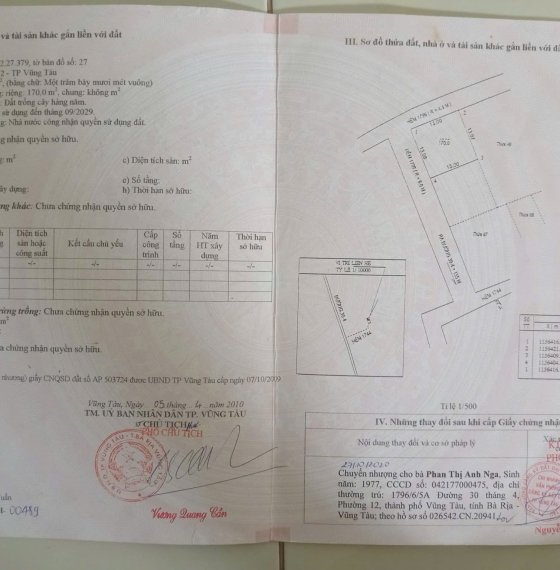 và tài sản khác gắn liền với đất
2.27.379, tờ bản đồ số: 27
2 - TP Vũng Tàu
², (bằng chữ: Một trăm bảy mươi mét vuông)
g: riêng: 170.0 m², chung: không m²
: Đất trồng cây hàng năm.
sử dụng đến tháng 09/2029.
g: Nhà nước công nhận quyền sử dụng đất.
ng nhận quyền sở hữu.
g: m²
c) Diện tích sàn: m²
e) Số tầng:
ây dựng:
h) Thời hạn sở hữu:
ng khác: Chưa chứng nhận quyền sở hữu.
Diện tích sàn hoặc công suất
Kết cấu chủ yếu
Cấp công trình
Số tầng
Năm HT xây dựng
Thời hạn sở hữu
-/-
-/-
-/-
-/-
-/-
-/-
rừng trồng: Chưa chứng nhận quyền sở hữu.
m²
a chứng nhận quyền sở hữu.
nhượng) giấy CNQSD đất số AP 503724 được UBND TP Vũng Tàu cấp ngày 07/10/2009
Vũng Tàu, ngày 05 tháng 4 năm 2010
TM. UỶ BAN NHÂN DÂN TP. VŨNG TÀU
CHỦ TỊCH
PHÓ CHỦ TỊCH
Vương Quang Cần
00489
III. Sơ đồ thửa đất, nhà ở và tài sản khác gắn liền với đ
HẺM 1796 (R = 4.0 M)
13.09
170.0
13.09
13.00
HẺM 1796 (R = 6.0 M)
Thửa 67
VỊ TRÍ LIÊN HỆ
TỶ LỆ 1/10000
ĐƯỜNG 30.4
HẺM 1744
HẺM 1744
Số
TT
1 1156416.
2 1156421.
3 1156409.
4 1156404.
1 1156416.
Tỉ lệ 1/500
IV. Những thay đổi sau khi cấp Giấy chứng nhận
Nội dung thay đổi và cơ sở pháp lý
Chuyển nhượng cho bà Phan Thị Anh Nga, Sinh
năm: 1977, CCCD số: 042177000475, địa chỉ
thường trú: 1796/6/5A Đường 30 tháng 4,
Phường 12, thành phố Vũng Tàu, tỉnh Bà Rịa -
Vũng Tàu; theo hồ sơ số 026542.CN.20941